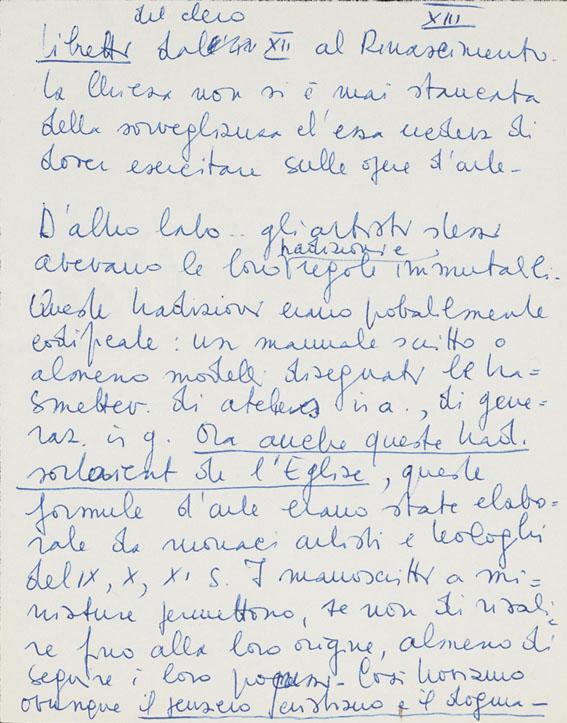 del clero
XIII
Libretti dal XII al Rinascimento.
La Chiesa non si è mai stancata
della sorveglianza ch'essa credeva di
dover esercitare sulle opere d'arte –
D'altro lato .. gli artisti stessi
tradizioni e
avevano le loro regole immutabili.
Queste tradizioni erano probabilmente
codificate : un manuale scritto o
almeno modelli disegnati le tra=
smettev. di atelers in a., di gene=
raz. in g. Ora anche queste trad.
sortaient de l'Eglise, queste
formule d'arte erano state elabo=
rate da monaci artisti e teologhi
del IX, X, XI S. I manoscritti a mi=
niature permettono, se non di risali=
re fino alla loro origine, almeno di
seguire i loro Così troviamo
ovunque il pensiero cristiano e il dogma –